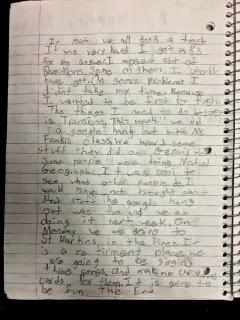 In math we all took a test
It was very hard I got a 85
for my answer. I missed alot of
Questions. Some of them I would
have got. On some problems I
didn't take my time Because
I wanted to be first to finish
The things I need to
is This week we did
a google hang out with Ms.
Frankis class. We heard some
stuff they did over
Some people were doing
Geographic. It was cool to
see what other people do I
would have not thought about
that stuff the google hang
out was fun and we are
doing it next week. On
Monday we are going to
St Martins in the Pines It
is a retirment place we
are going to be singing
these songs, and making
cards for them. It is going to
be fun. The End